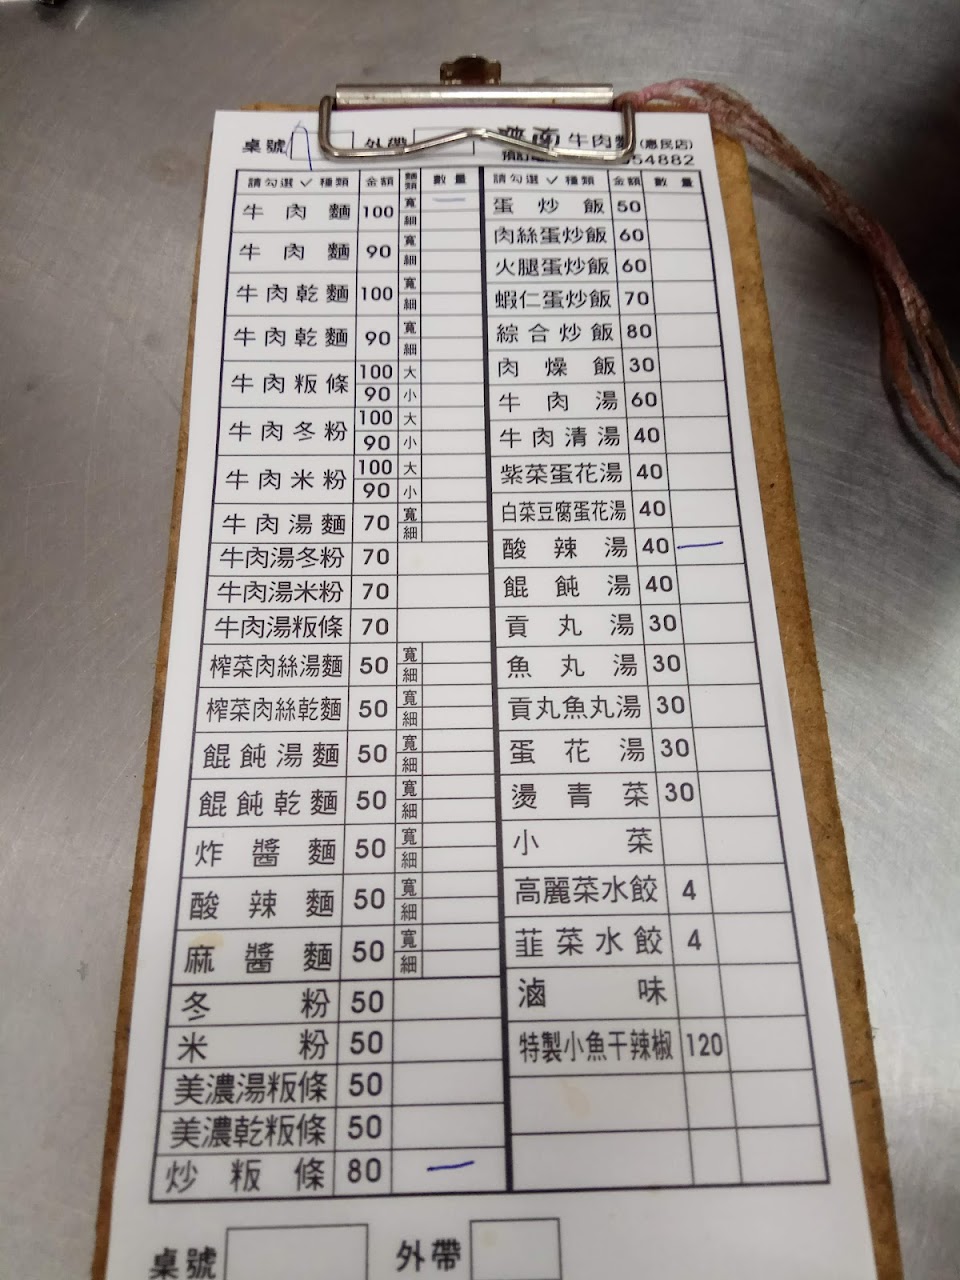 桌號 外帶 牛肉麵(惠民店)
54882
請勾選✓種類 金額 麵類 數量
牛肉麵 100 寬 細 一
牛肉麵 90 寬 細
牛肉乾麵 100 寬 細
牛肉乾麵 90 寬 細
牛肉粄條 100 大 90 小
牛肉冬粉 100 大 90 小
牛肉米粉 100 大 90 小
牛肉湯麵 70 寬 細
牛肉湯冬粉 70
牛肉湯米粉 70
牛肉湯粄條 70
榨菜肉絲湯麵 50 寬 細
榨菜肉絲乾麵 50 寬 細
餛飩湯麵 50 寬 細
餛飩乾麵 50 寬 細
炸醬麵 50 寬 細
酸辣麵 50 寬 細
麻醬麵 50 寬 細
冬粉 50
米粉 50
美濃湯粄條 50
美濃乾粄條 50
炒粄條 80 一
請勾選✓種類 金額 數量
蛋炒飯 50
肉絲蛋炒飯 60
火腿蛋炒飯 60
蝦仁蛋炒飯 70
綜合炒飯 80
肉燥飯 30
牛肉湯 60
牛肉清湯 40
紫菜蛋花湯 40
白菜豆腐蛋花湯 40
酸辣湯 40 一
餛飩湯 40
貢丸湯 30
魚丸湯 30
貢丸魚丸湯 30
蛋花湯 30
燙青菜 30
小菜
高麗菜水餃 4
韮菜水餃 4
滷味
特製小魚干辣椒 120
桌號 外帶